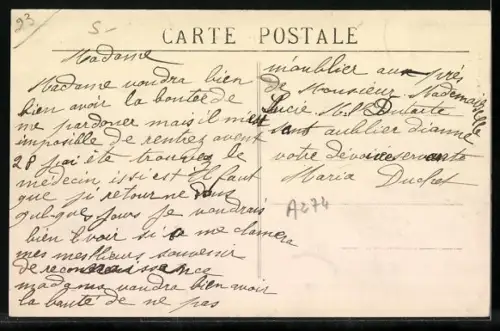 23
5-
CARTE POSTALE
Madame
Madame voudra bien
bien avoir la bonter de
me pardoner mais il m'est
imposible de rentrez avent
28 j'ai été trouvez le
médecin issi est Il faut
que ji retourne dans
quelques jours je voudrais
bien savoir si sa me
mes meslieurs souvenir
de reconnaissance
madame voudra bien avoir
la bonté de ne pas
m'oublier au près
de Monsieur Mademaiselle
Lucie. M. Dutarte
sent aublier dianne
votre dévouée servante
Maria Duchet
A274